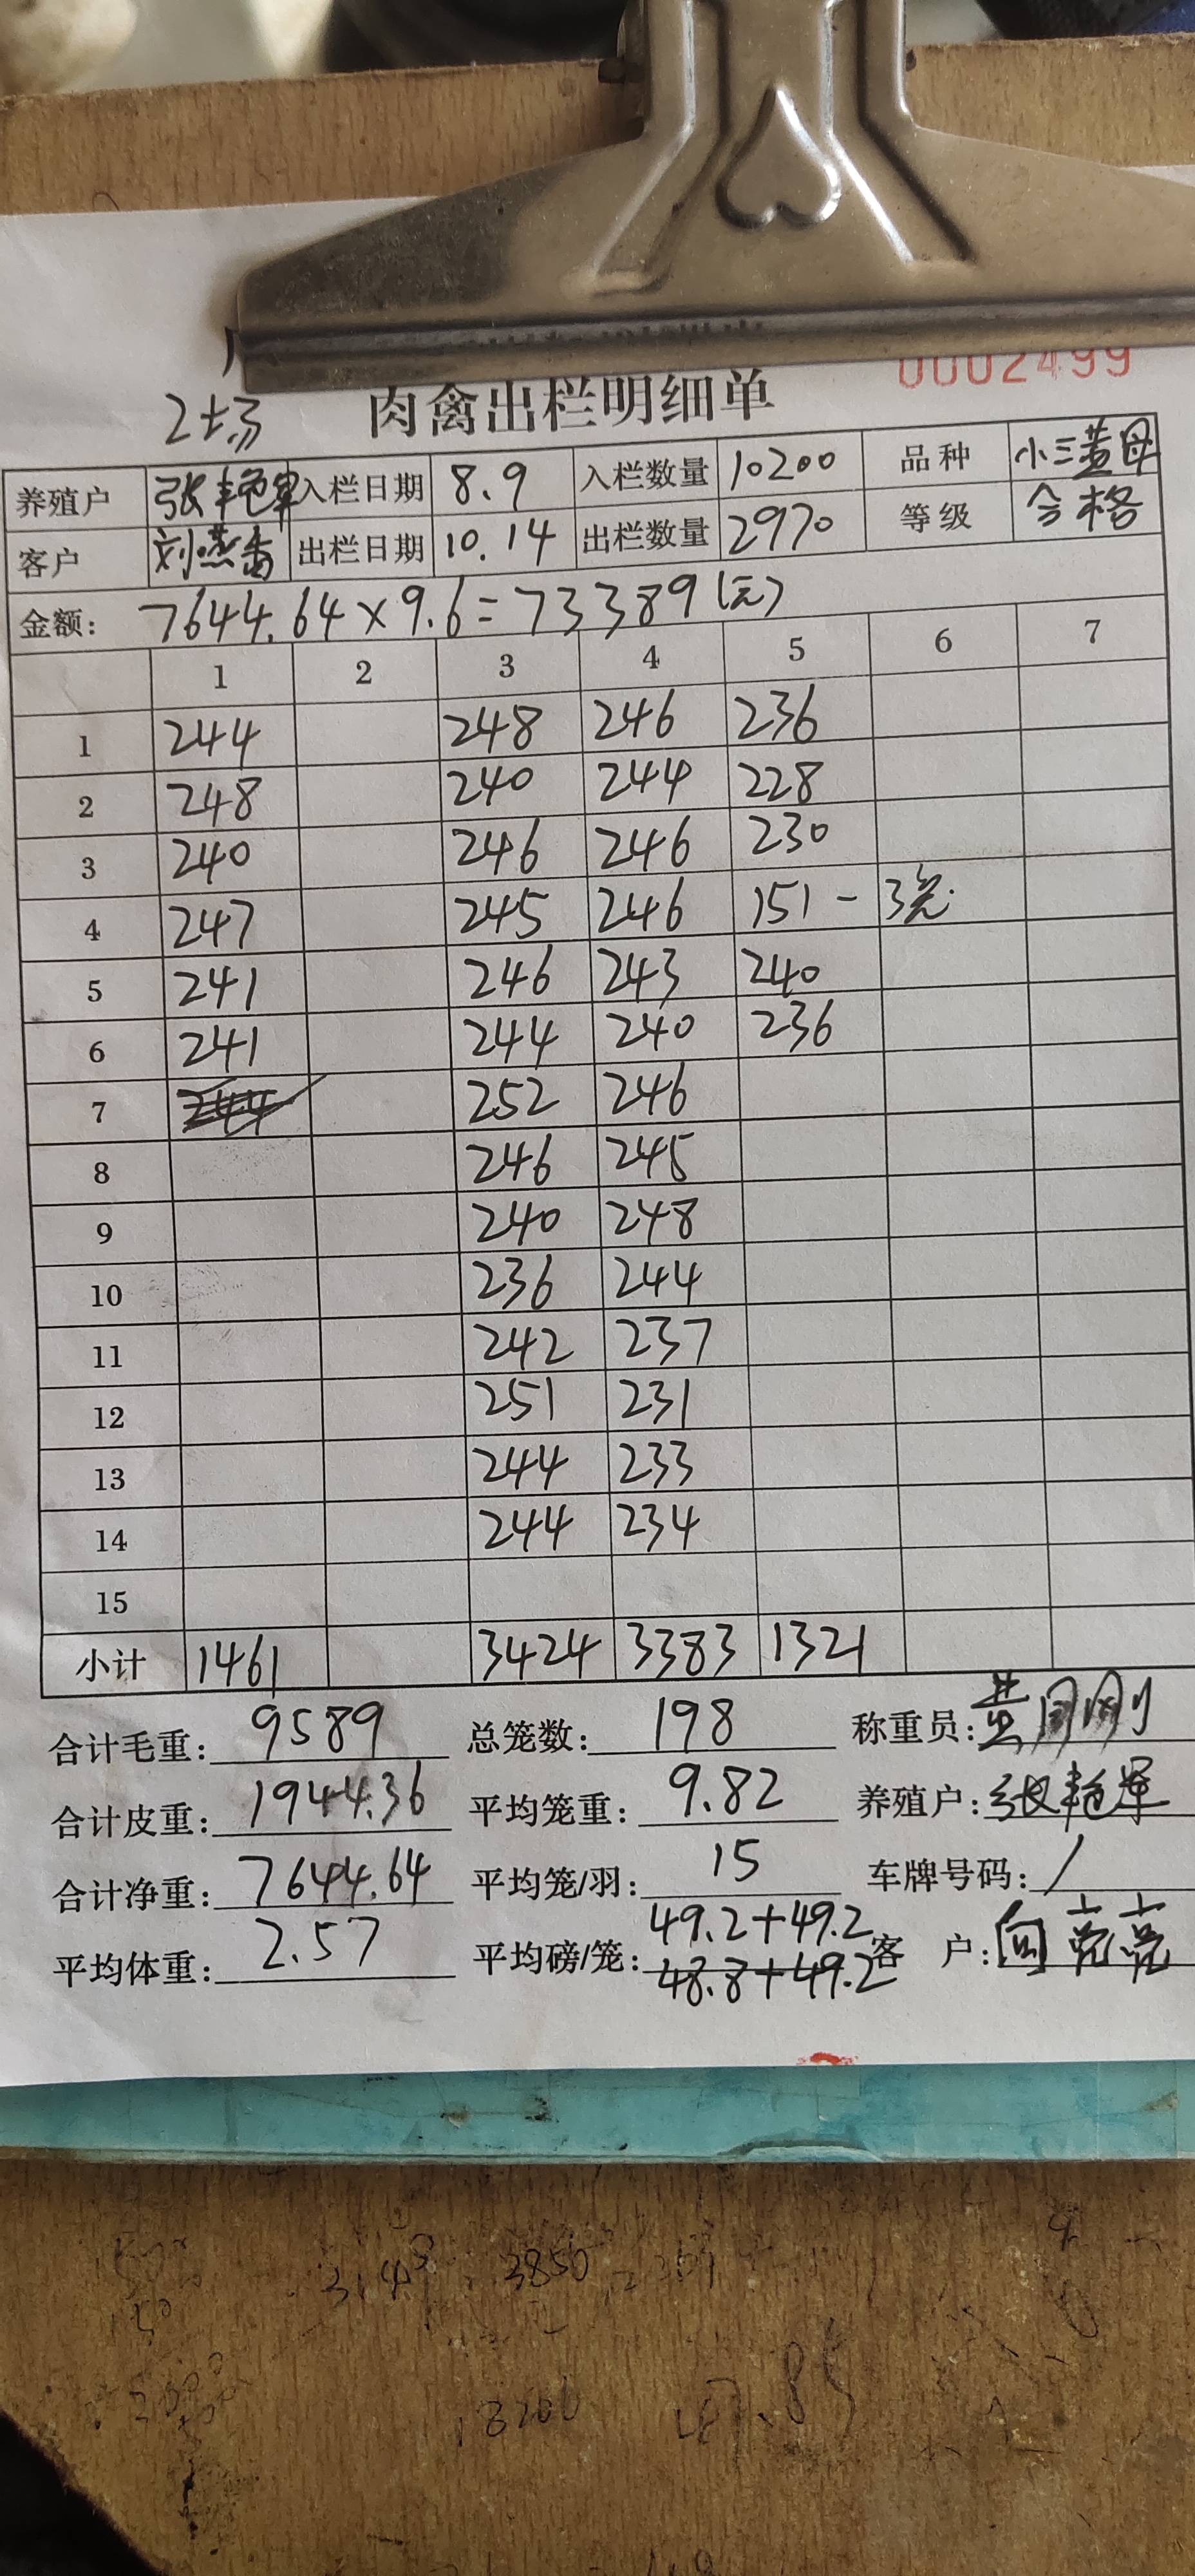 0002499
2场 肉禽出栏明细单
养殖户 张艳军 入栏日期 8.9 入栏数量 10200 品种 小三黄母
客户 刘燕香 出栏日期 10.14 出栏数量 2970 等级 合格
金额: 7644.64×9.6=73389(元)
1 2 3 4 5 6 7
1 244 248 246 236
2 248 240 244 228
3 240 246 246 230
4 247 245 246 151 - 3笼.
5 241 246 243 240
6 241 244 240 236
7 244 252 246
8 246 245
9 240 248
10 236 244
11 242 237
12 251 231
13 244 233
14 244 234
15
小计 1461 3424 3383 1321
合计毛重: 9589 总笼数: 198 称重员: 黄刚
合计皮重: 1944.36 平均笼重: 9.82 养殖户: 张艳军
合计净重: 7644.64 平均笼/羽: 15 车牌号码: /
平均体重: 2.57 平均磅/笼: 49.2+49.2 客 户: 向亮亮
48.8+49.2
3850